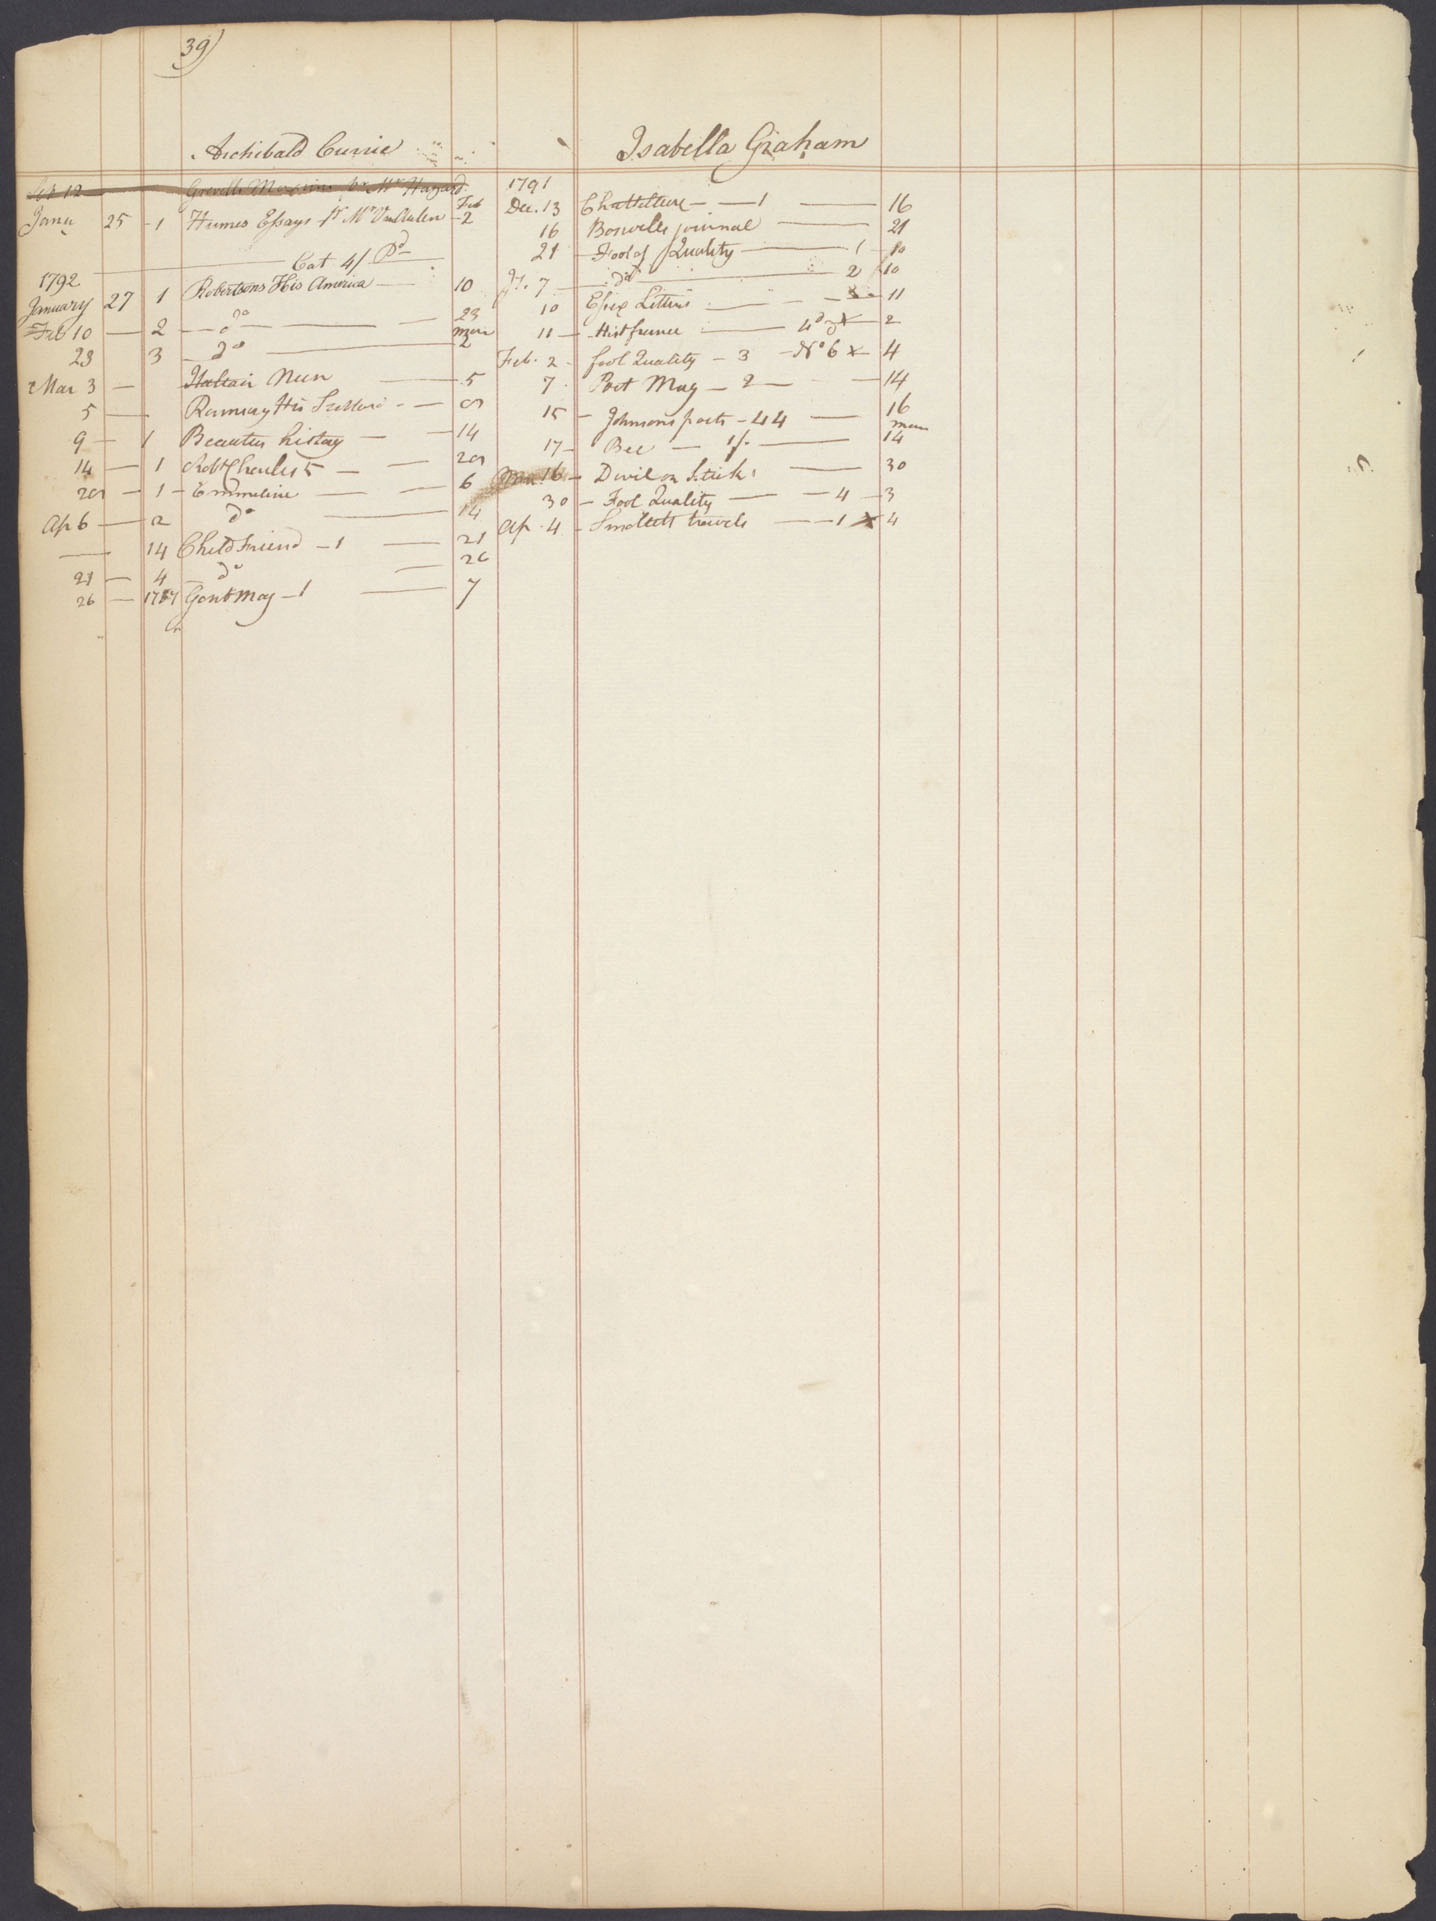 39)
Archibald Currie
Sep 12 Grevills Maxims pr Mr Hazard
Janu 25 - 1 Humes Essays pr Mr Feb 2
Cat 4/ Pd
1792
January 27 1 Robertsons His America — 10
Feb 10 — 2 — do — 23
23 3 — do — Mar 2
Mar 3 — Italian Nun — 5
5 — Ramsay His — 9
9 — 1 Beauties history — 14
14 — 1 Robt Charles 5 — 20
20 — 1 - Emmeline — 6
Ap 6 — 2 do — 14
— 14 Child Friend - 1 — 21
21 — 4 do — 26
26 — 1787 Gent Mag - 1 — 7
Isabella Graham
1791
Dec. 13 Chattelleux — 1 — 16
16 Boswells journal — 21
21 - Fool of Quality — 1 - 10
Ja. 7 — do — 2 10
10 Essex Letters — 11
11 - Hist france — 4d x — 2
Feb. 2 - fool Quality — 3 - No 6 x — 4
7 - Poet Mag — 2 — 14
15 - Johnsons poets - 44 — 16
17 - Bee — 1/. — mar 14
Mar 16 - Devil on Sticks — 30
30 - Fool Quality — 4 — 3
Ap. 4 - Smollett travels — 1 x 4